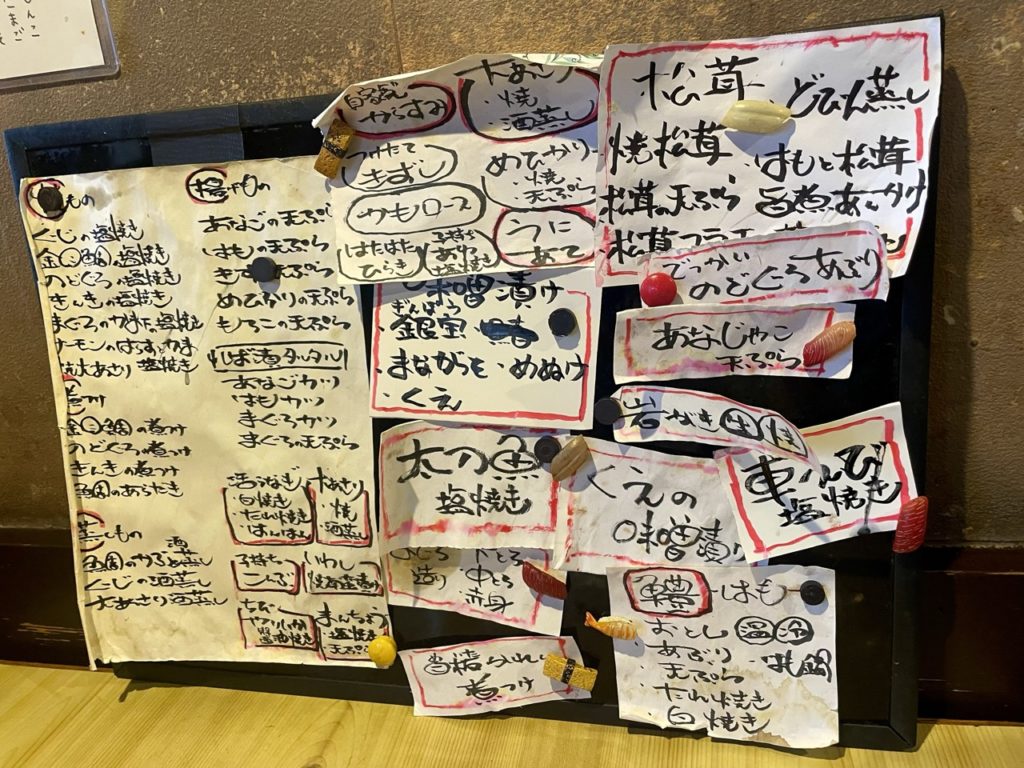 もの
ぐじの塩焼き
金目鯛の塩焼き
のどぐろの塩焼き
きんきの塩焼き
まぐろのカマの塩焼
サーモンのはらす、カマ
大あさり 塩焼き
煮つけ
金目鯛の煮つけ
のどぐろの煮つけ
きんきの煮つけ
のあらだき
蒸しもの
のかぶと蒸し
ぐじの酒蒸し
大あさり酒蒸し
揚げもの
あなごの天ぷら
はもの天ぷら
きすの天ぷら
めひかりの天ぷら
もろこの天ぷら
しば漬タルタル
あなごカツ
はもカツ
まぐろカツ
まぐろの天ぷら
活うなぎ
白焼き
たれ焼き
はんはん
大あさり
・焼
酒蒸し
子持ち
こんぶ
いわし
まんぢゅう
塩焼き
天ぷら
自家製
からすみ
大あさり
・焼
・酒蒸し
つけたて
きずし
めひかり
・焼
・天ぷら
カモロース
はたはた
ひらき
子持ち
あゆ
塩焼き
うに
あて
味噌漬け
ぎんぽう
・銀宝
・まながつを・めぬけ
・くえ
松茸
どびん蒸し
焼松茸
はもと松茸
松茸の天ぷら
旨煮あんかけ
松茸フライ
でっかい
のどぐろあぶり
あなじゃこ
天ぷら
岩がき 生 焼
太刀魚
塩焼き
くえの
味噌漬け
車えび
塩焼き
造り
中とろ
赤身
煮つけ
はも
おとし 温 冷
あぶり
天ぷら
はも鍋
たれ焼き
白焼き